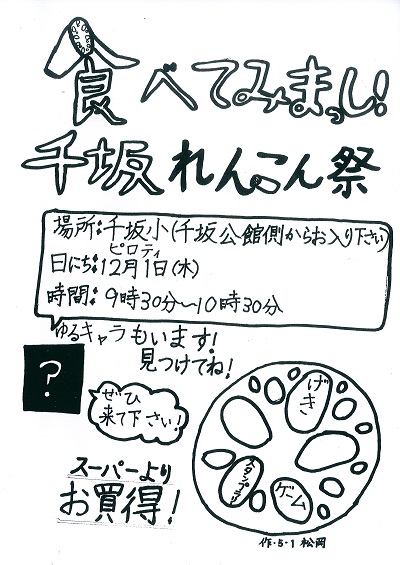 食べてみまっし!
千坂れんこん祭
場所:千坂小(千坂公館側からお入り下さい)
ピロティ
日にち:12月1日(木)
時間:9時30分〜10時30分
ゆるキャラもいます!
見つけてね!
?
ぜひ
来て下さい!
げき
スタンプラリー
ゲーム
スーパーより
お買得!
作・5-1 松岡